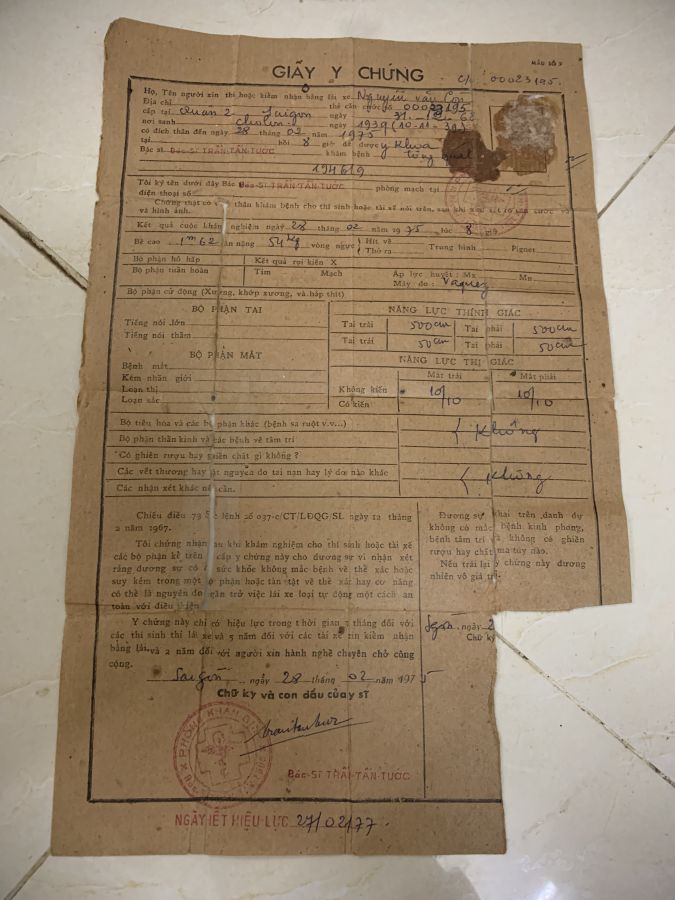 MẪU SỐ 2
GIẤY Y CHỨNG
C/c: 00023195.
Họ, Tên người xin thi hoặc kiểm nhận bằng lái xe Nguyễn văn Con
Địa chỉ thẻ căn cước số 00023195
cấp tại Quận 2 Saigon ngày 31-12-68
nơi sanh Cholon ngày 1939 (10-11-39)
có đích thân đến ngày 28 tháng 02 năm 1975
tại hồi 8 giờ để được y khoa
Bác sĩ Bác-Sĩ TRẦN-TẤN-TƯỚC khám bệnh tổng quát
194619
Tôi ký tên dưới đây Bác Bác-Sĩ TRẦN-TẤN-TƯỚC phòng mạch tại
điện thoại số
Chứng thật có thân khám bệnh cho thí sinh hoặc tài xế nói trên, sau khi xét căn cước và
và hình ảnh.
Kết quả cuộc khám nghiệm ngày 28 tháng 02 năm 1975, lúc 8 giờ
Bề cao 1m62 cân nặng 54kg vòng ngực Hít vô Trung bình Pignet
Thở ra
Bộ phận hô hấp Kết quả rọi kiến X
Bộ phận tuần hoàn Tim Mạch Áp lực huyết: Mx Mn
Máy đo: Vaquez
Bộ phận cử động (Xương, khớp xương, và bắp thịt)
BỘ PHẬN TAI NĂNG LỰC THÍNH GIÁC
Tiếng nói lớn Tai trái 500cm Tai phải 500cm
Tiếng nói thầm Tai trái 50cm Tai phải 50cm
BỘ PHẬN MẮT NĂNG LỰC THỊ GIÁC
Bệnh mắt Mắt trái Mắt phải
Kém nhãn giới Không kiến 10/10 10/10
Loạn thị Có kiến
Loạn sắc
Bộ tiêu hóa và các bộ phận khác (bệnh sa ruột v.v...) Không
Bộ phận thần kinh và các bệnh về tâm trí
Có ghiền rượu hay ghiền chất gì không?
Các vết thương hay tật nguyên do tai nạn hay lý do nào khác Không
Các nhận xét khác nếu cần.
Chiếu điều 79 Sắc lệnh số 037-c/CT/LĐQG/SL ngày 12 tháng
2 năm 1967.
Tôi chứng nhận sau khi khám nghiệm cho thí sinh hoặc tài xế
các bộ phận kể trên cấp y chứng này cho đương sự vì nhận xét
rằng đương sự có sức khỏe không mắc bệnh về thể xác hoặc
suy kém trong một bộ phận hoặc tàn tật về thể xác hay cơ năng
có thể là nguyên do ngăn trở việc lái xe loại tự động một cách an
toàn với điều kiện
Y chứng này chỉ có hiệu lực trong thời gian 3 tháng đối với
các thí sinh thi lái xe và 5 năm đối với các tài xế xin kiểm nhận
bằng lái, và 2 năm đối với người xin hành nghề chuyên chở công
cộng.
Saigòn, ngày 28 tháng 02 năm 1975
Chữ ký và con dấu của y sĩ
PHÒNG KHÁM BỊNH
Bác-Sĩ TRẦN-TẤN-TƯỚC
NGÀY HẾT HIỆU LỰC 27/02/77.
Đương sự khai trên danh dự
không có mắc bệnh kinh phong,
bệnh tâm trí và không có ghiền
rượu hay chất ma túy nào.
Nếu trái lại y chứng này đương
nhiên vô giá trị.
Sgòn, ngày 2
Chữ ký